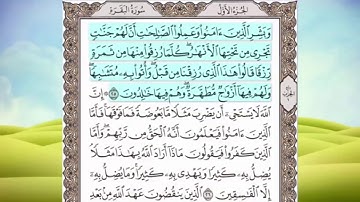 الجزء الأول سورة البقرة
وَبَشِّرِ الَّذِينَ ءَامَنُوا وَعَمِلُوا الصَّالِحَاتِ أَنَّ لَهُمْ جَنَّاتٍ
تَجْرِي مِن تَحْتِهَا الْأَنْهَارُ كُلَّمَا رُزِقُوا مِنْهَا مِن ثَمَرَةٍ
رِّزْقًا قَالُوا هَذَا الَّذِي رُزِقْنَا مِن قَبْلُ وَأُتُوا بِهِ مُتَشَابِهًا
وَلَهُمْ فِيهَا أَزْوَاجٌ مُّطَهَّرَةٌ وَهُمْ فِيهَا خَالِدُونَ ٢٥ إِنَّ
اللَّهَ لَا يَسْتَحْيِي أَن يَضْرِبَ مَثَلًا مَّا بَعُوضَةً فَمَا فَوْقَهَا فَأَمَّا
الَّذِينَ ءَامَنُوا فَيَعْلَمُونَ أَنَّهُ الْحَقُّ مِن رَّبِّهِمْ وَأَمَّا
الَّذِينَ كَفَرُوا فَيَقُولُونَ مَاذَا أَرَادَ اللَّهُ بِهَذَا مَثَلًا
يُضِلُّ بِهِ كَثِيرًا وَيَهْدِي بِهِ كَثِيرًا وَمَا يُضِلُّ بِهِ
إِلَّا الْفَاسِقِينَ ٢٦ الَّذِينَ يَنقُضُونَ عَهْدَ اللَّهِ مِن بَعْدِ